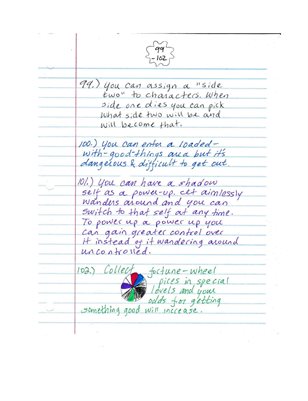 99
-102
99.) you can assign a "side
two" to characters. When
side one dies you can pick
what side two will be and
will become that.
100.) You can enter a loaded-
with-good-things area but it's
dangelous & difficult to get out.
101.) You can have a shadow
self as a power-up. It aimlessly
wanders around and you can
switch to that self at any time.
To power up a power up you
can gain greater control over
it instead of it wandering around
uncontrolled.
102.) Collect fortune-wheel
pices in special
levels and your
odds for getting
something good will increase.